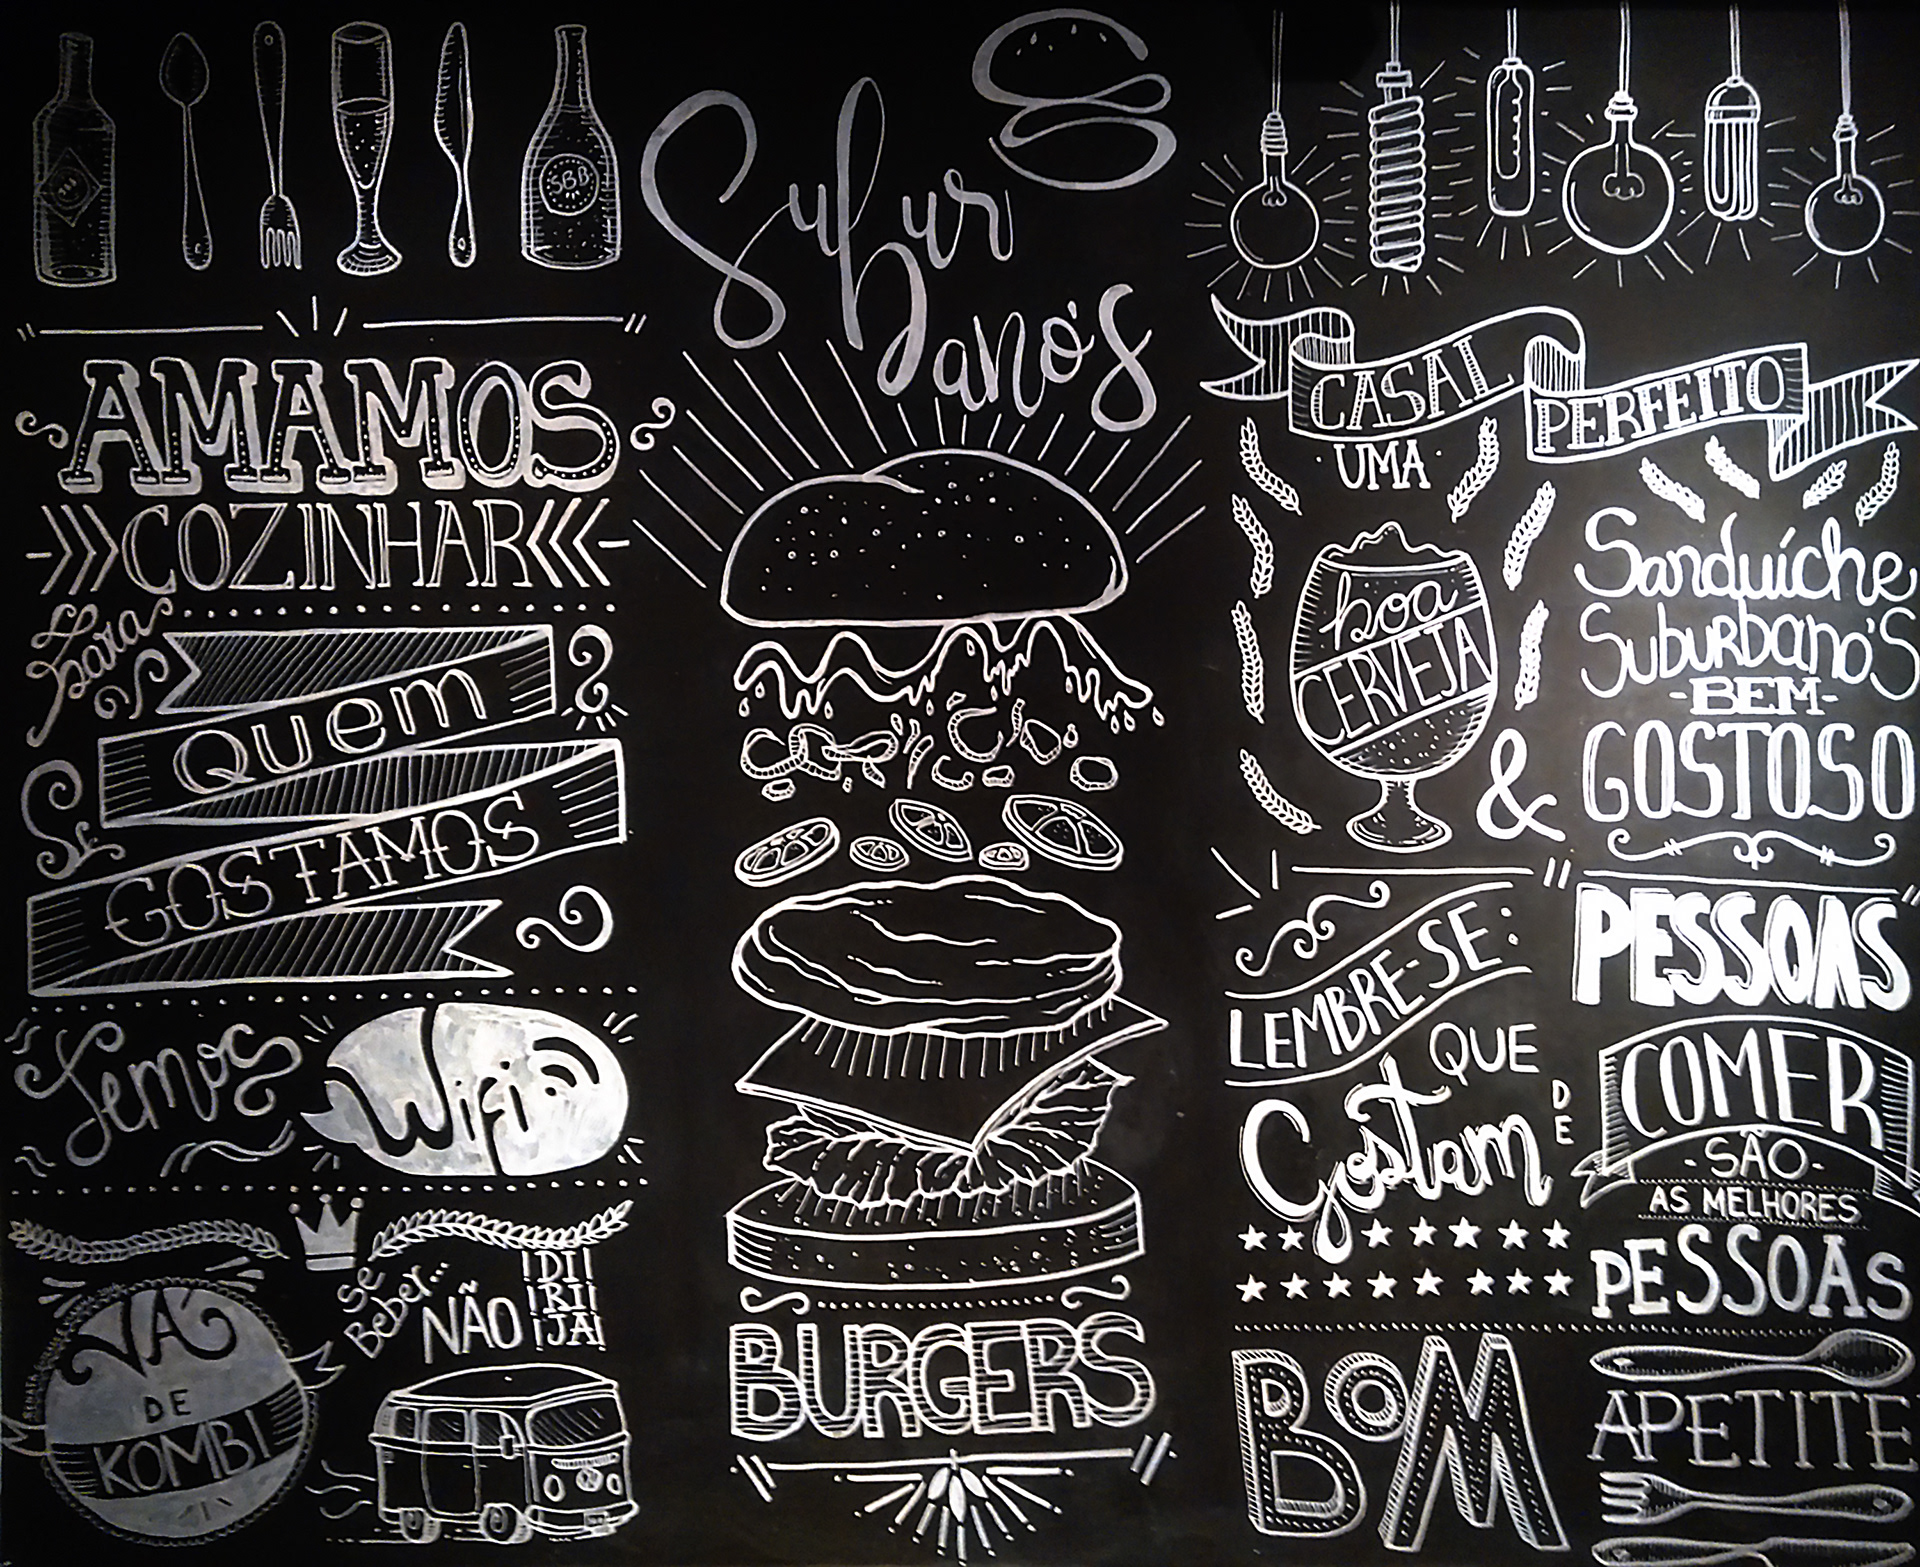 SBB
Subur
bano's
AMAMOS
COZINHAR
para
Quem
GOSTAMOS
Temos
Wifi
Se
Beber...
NÃO
DI
RI
JA
VÁ
DE
KOMBI
BURGERS
CASAL
PERFEITO
UMA
boa
CERVEJA
&
Sanduíche
Suburbano's
-BEM-
GOSTOSO
LEMBRE-SE:
PESSOAS
QUE
Gostam
DE
COMER
-SÃO-
AS MELHORES
PESSOAS
BOM
APETITE